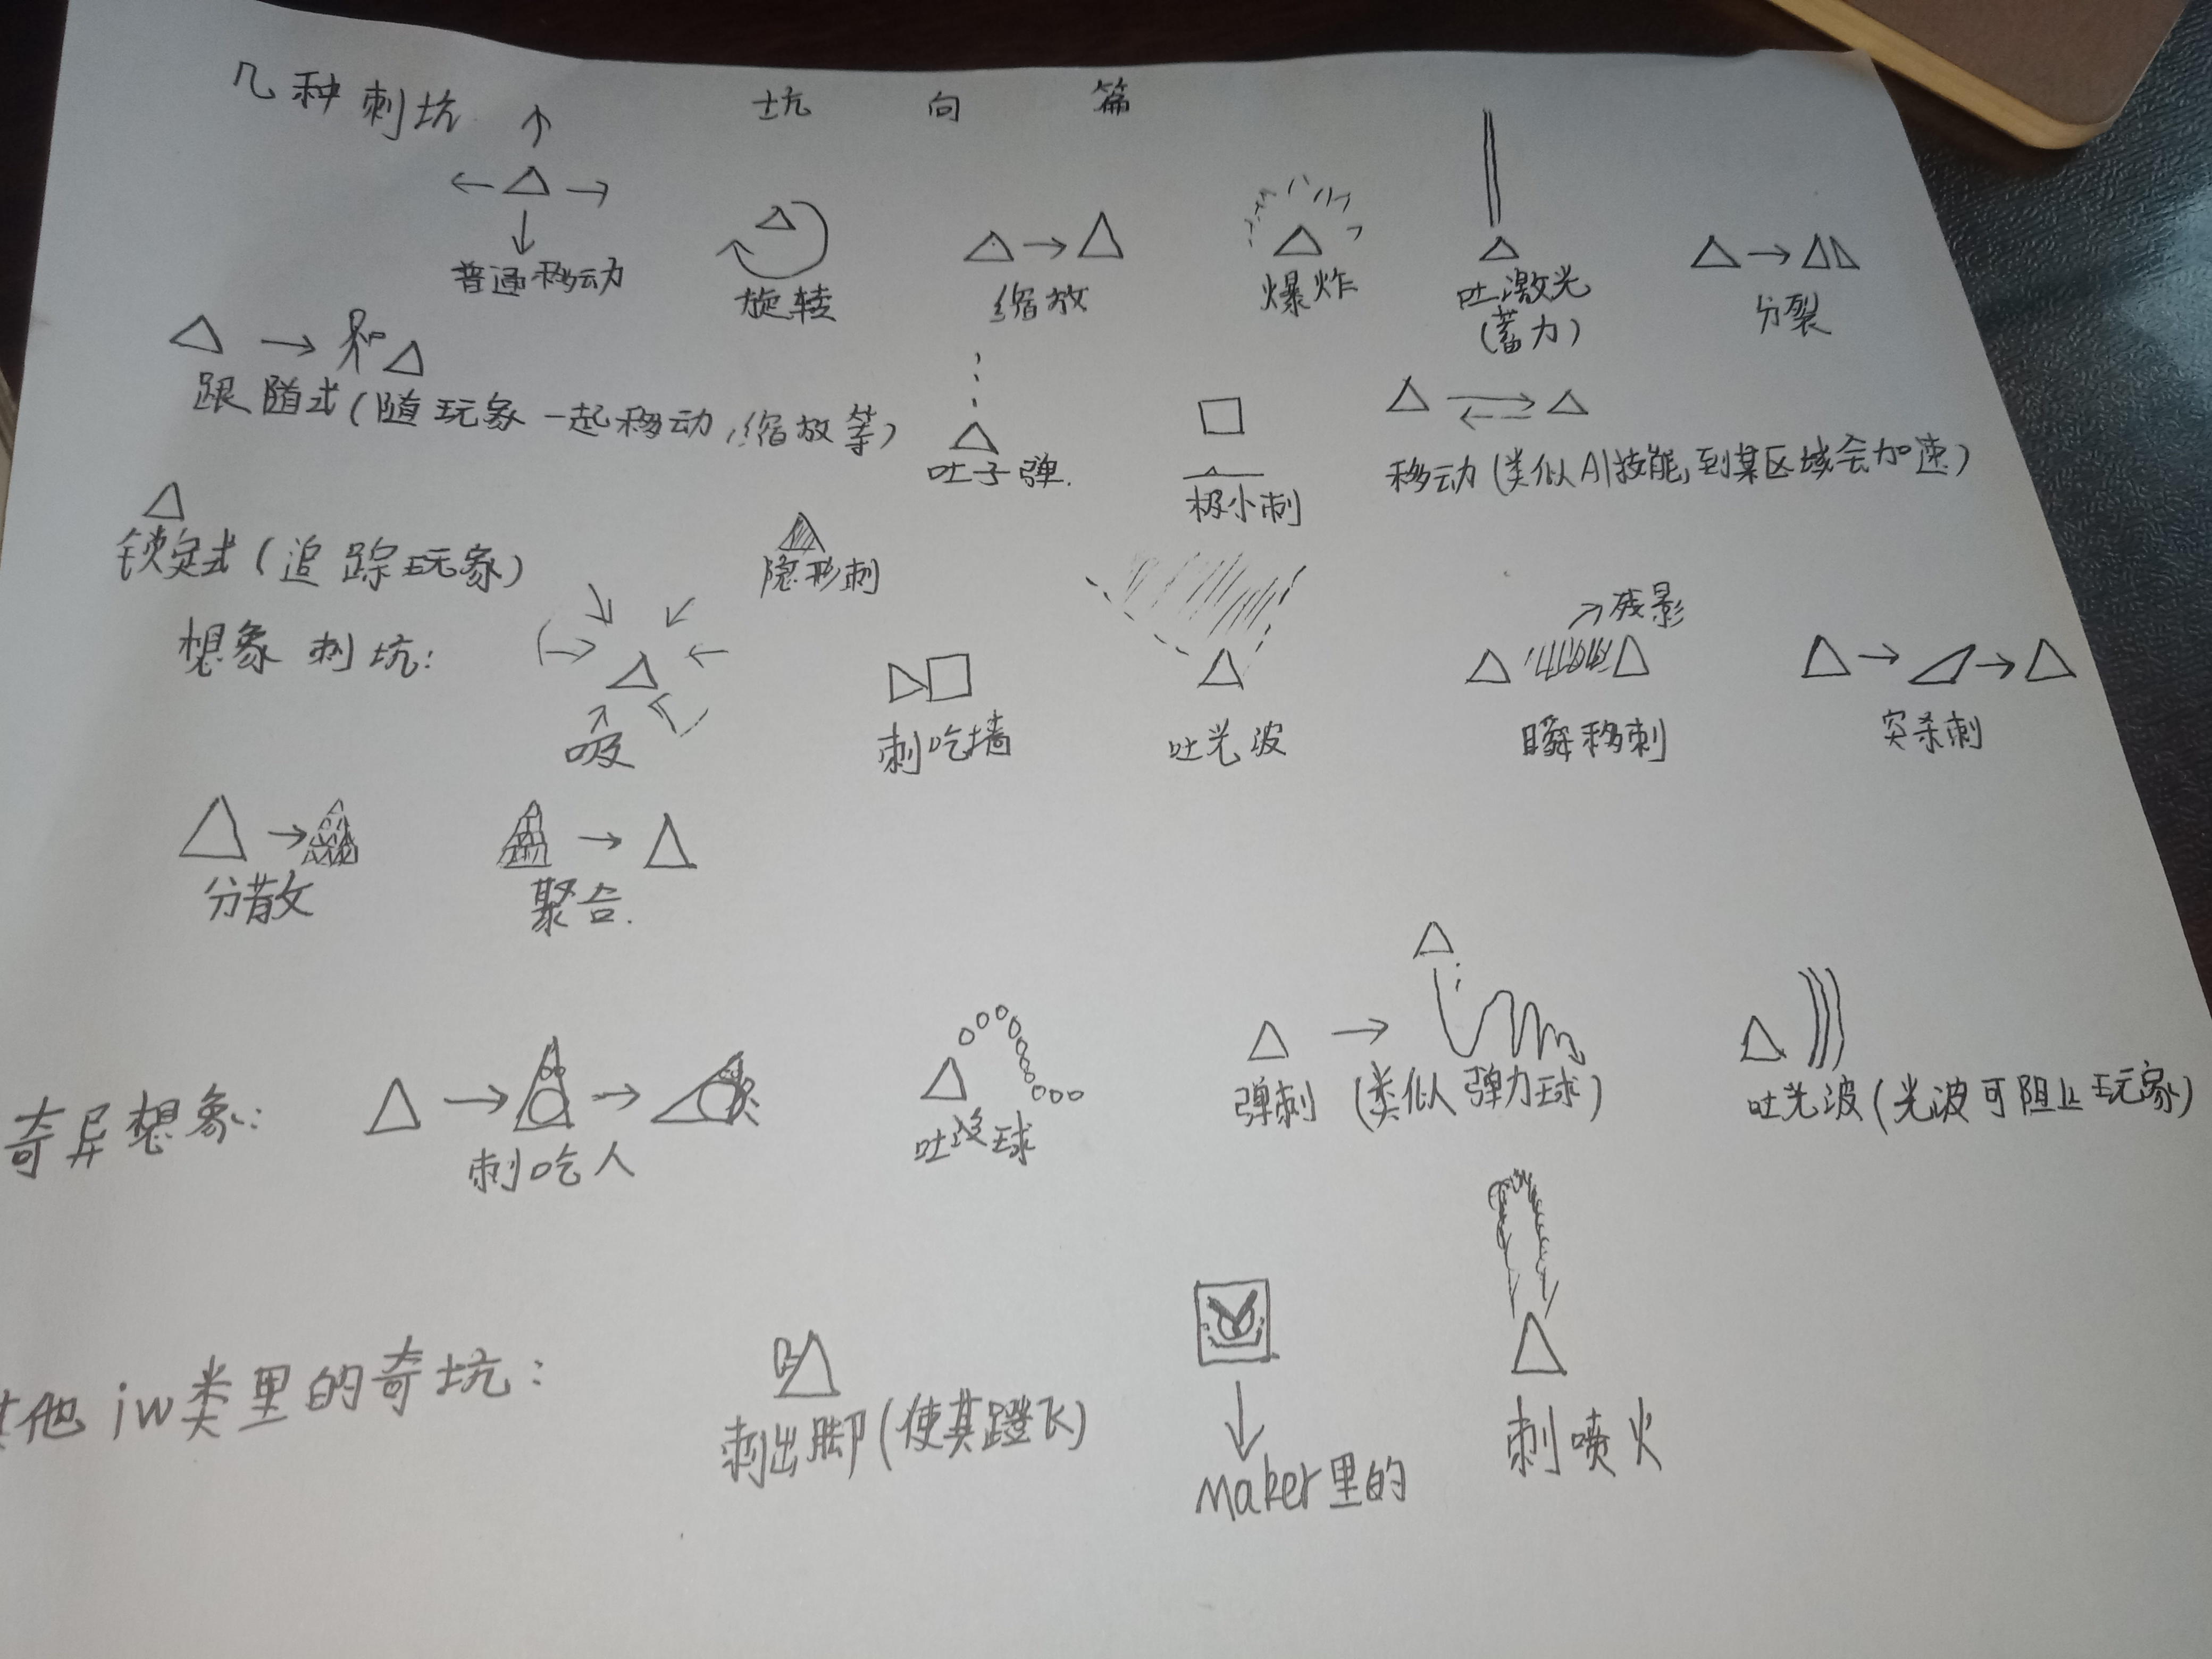 几种刺坑 坑 向 篇
普通移动 旋转 缩放 爆炸 吐激光 分裂
(蓄力)
跟随式(随玩家一起移动,缩放等) 吐子弹. 极小刺 移动(类似AI技能,到某区域会加速)
锁定式(追踪玩家) 隐形刺
想象刺坑: 残影
吸 刺吃墙 吐光波 瞬移刺 突杀刺
分散 聚合.
奇异想象: 刺吃人 吐滚球 弹刺 (类似弹力球) 吐光波(光波可阻止玩家)
其他iw类里的奇坑: 刺出脚(使其蹬飞) maker里的 刺喷火